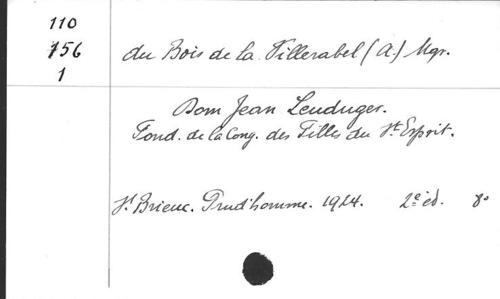 110
156
1
du Bois de la Villerabel (A.) Mgr.
Dom Jean Leuduger.
Fond. de la Cong. des Filles du St. Esprit.
St. Brieuc. Prud'homme. 1924. 2e éd. 8o